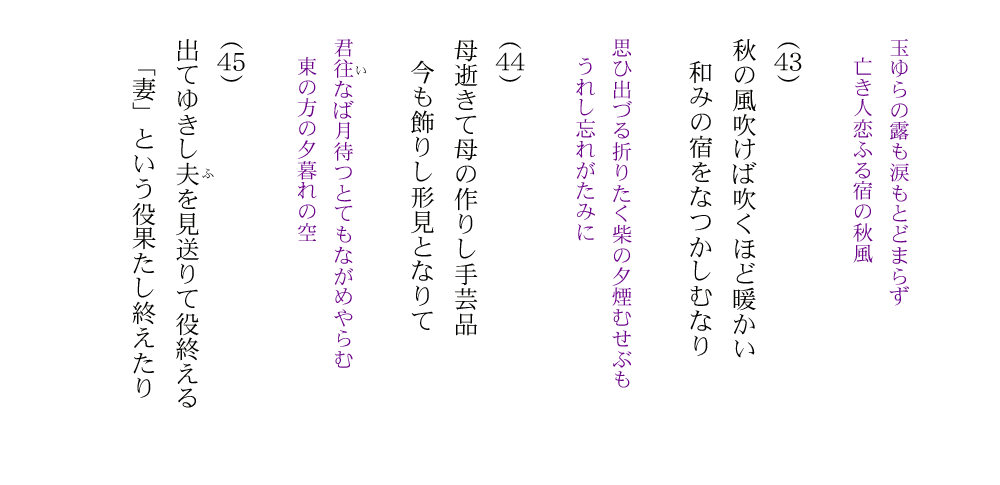 玉ゆらの露も涙もとどまらず
亡き人恋ふる宿の秋風
(43)
秋の風吹けば吹くほど暖かい
和みの宿をなつかしむなり
思ひ出づる折りたく柴の夕煙むせぶも
うれし忘れがたみに
(44)
母逝きて母の作りし手芸品
今も飾りし形見となりて
君往なば月待つとてもながめやらむ
い
東の方の夕暮れの空
(45)
出てゆきし夫を見送りて役終える
ふ
「妻」という役果たし終えたり